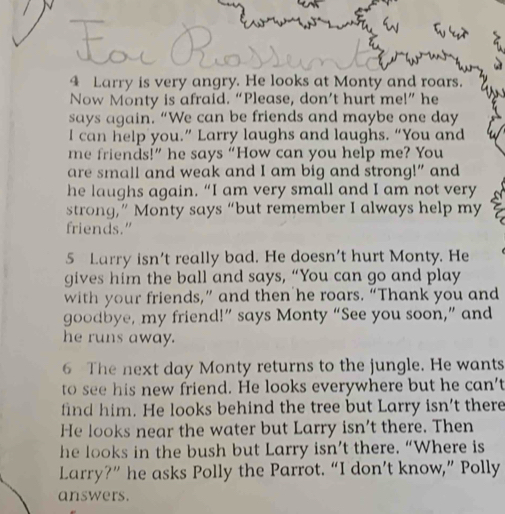 For
4 Larry is very angry. He looks at Monty and roars.
Now Monty is afraid. “Please, don’t hurt me!” he
says again. “We can be friends and maybe one day
I can help you.” Larry laughs and laughs. “You and
me friends!” he says “How can you help me? You
are small and weak and I am big and strong!” and
he laughs again. “I am very small and I am not very
strong,” Monty says “but remember I always help my
friends.”
5 Larry isn’t really bad. He doesn’t hurt Monty. He
gives him the ball and says, “You can go and play
with your friends,” and then he roars. “Thank you and
goodbye, my friend!” says Monty “See you soon,” and
he runs away.
6 The next day Monty returns to the jungle. He wants
to see his new friend. He looks everywhere but he can’t
find him. He looks behind the tree but Larry isn’t there
He looks near the water but Larry isn’t there. Then
he looks in the bush but Larry isn’t there. “Where is
Larry?” he asks Polly the Parrot. “I don’t know,” Polly
answers.